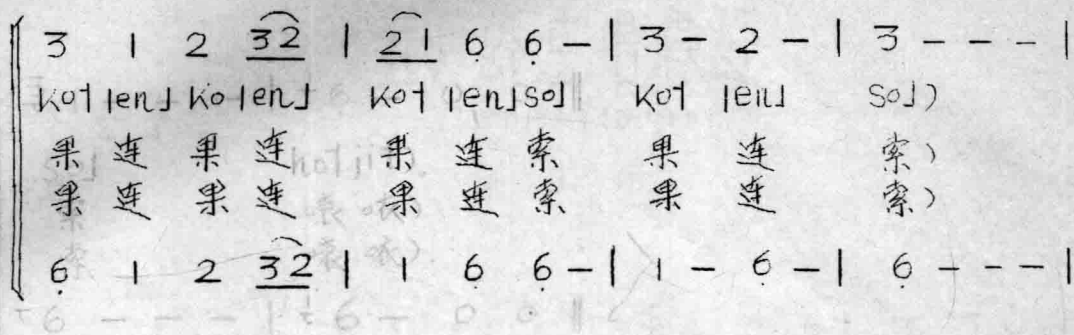 3 1 2 3̲2̲ | 2̲1̲ 6̣ 6̣ – | 3 – 2 – | 3 – – – |
ko˧ len˩ ko len˩ ko˧ len˩ so˩ ko˧ len˩ so˩)
果 连 果 连 果 连 索 果 连 索)
果 连 果 连 果 连 索 果 连 索)
6̣ 1 2 3̲2̲ | 1 6̣ 6̣ – | 1 – 6̣ – | 6̣ – – – |